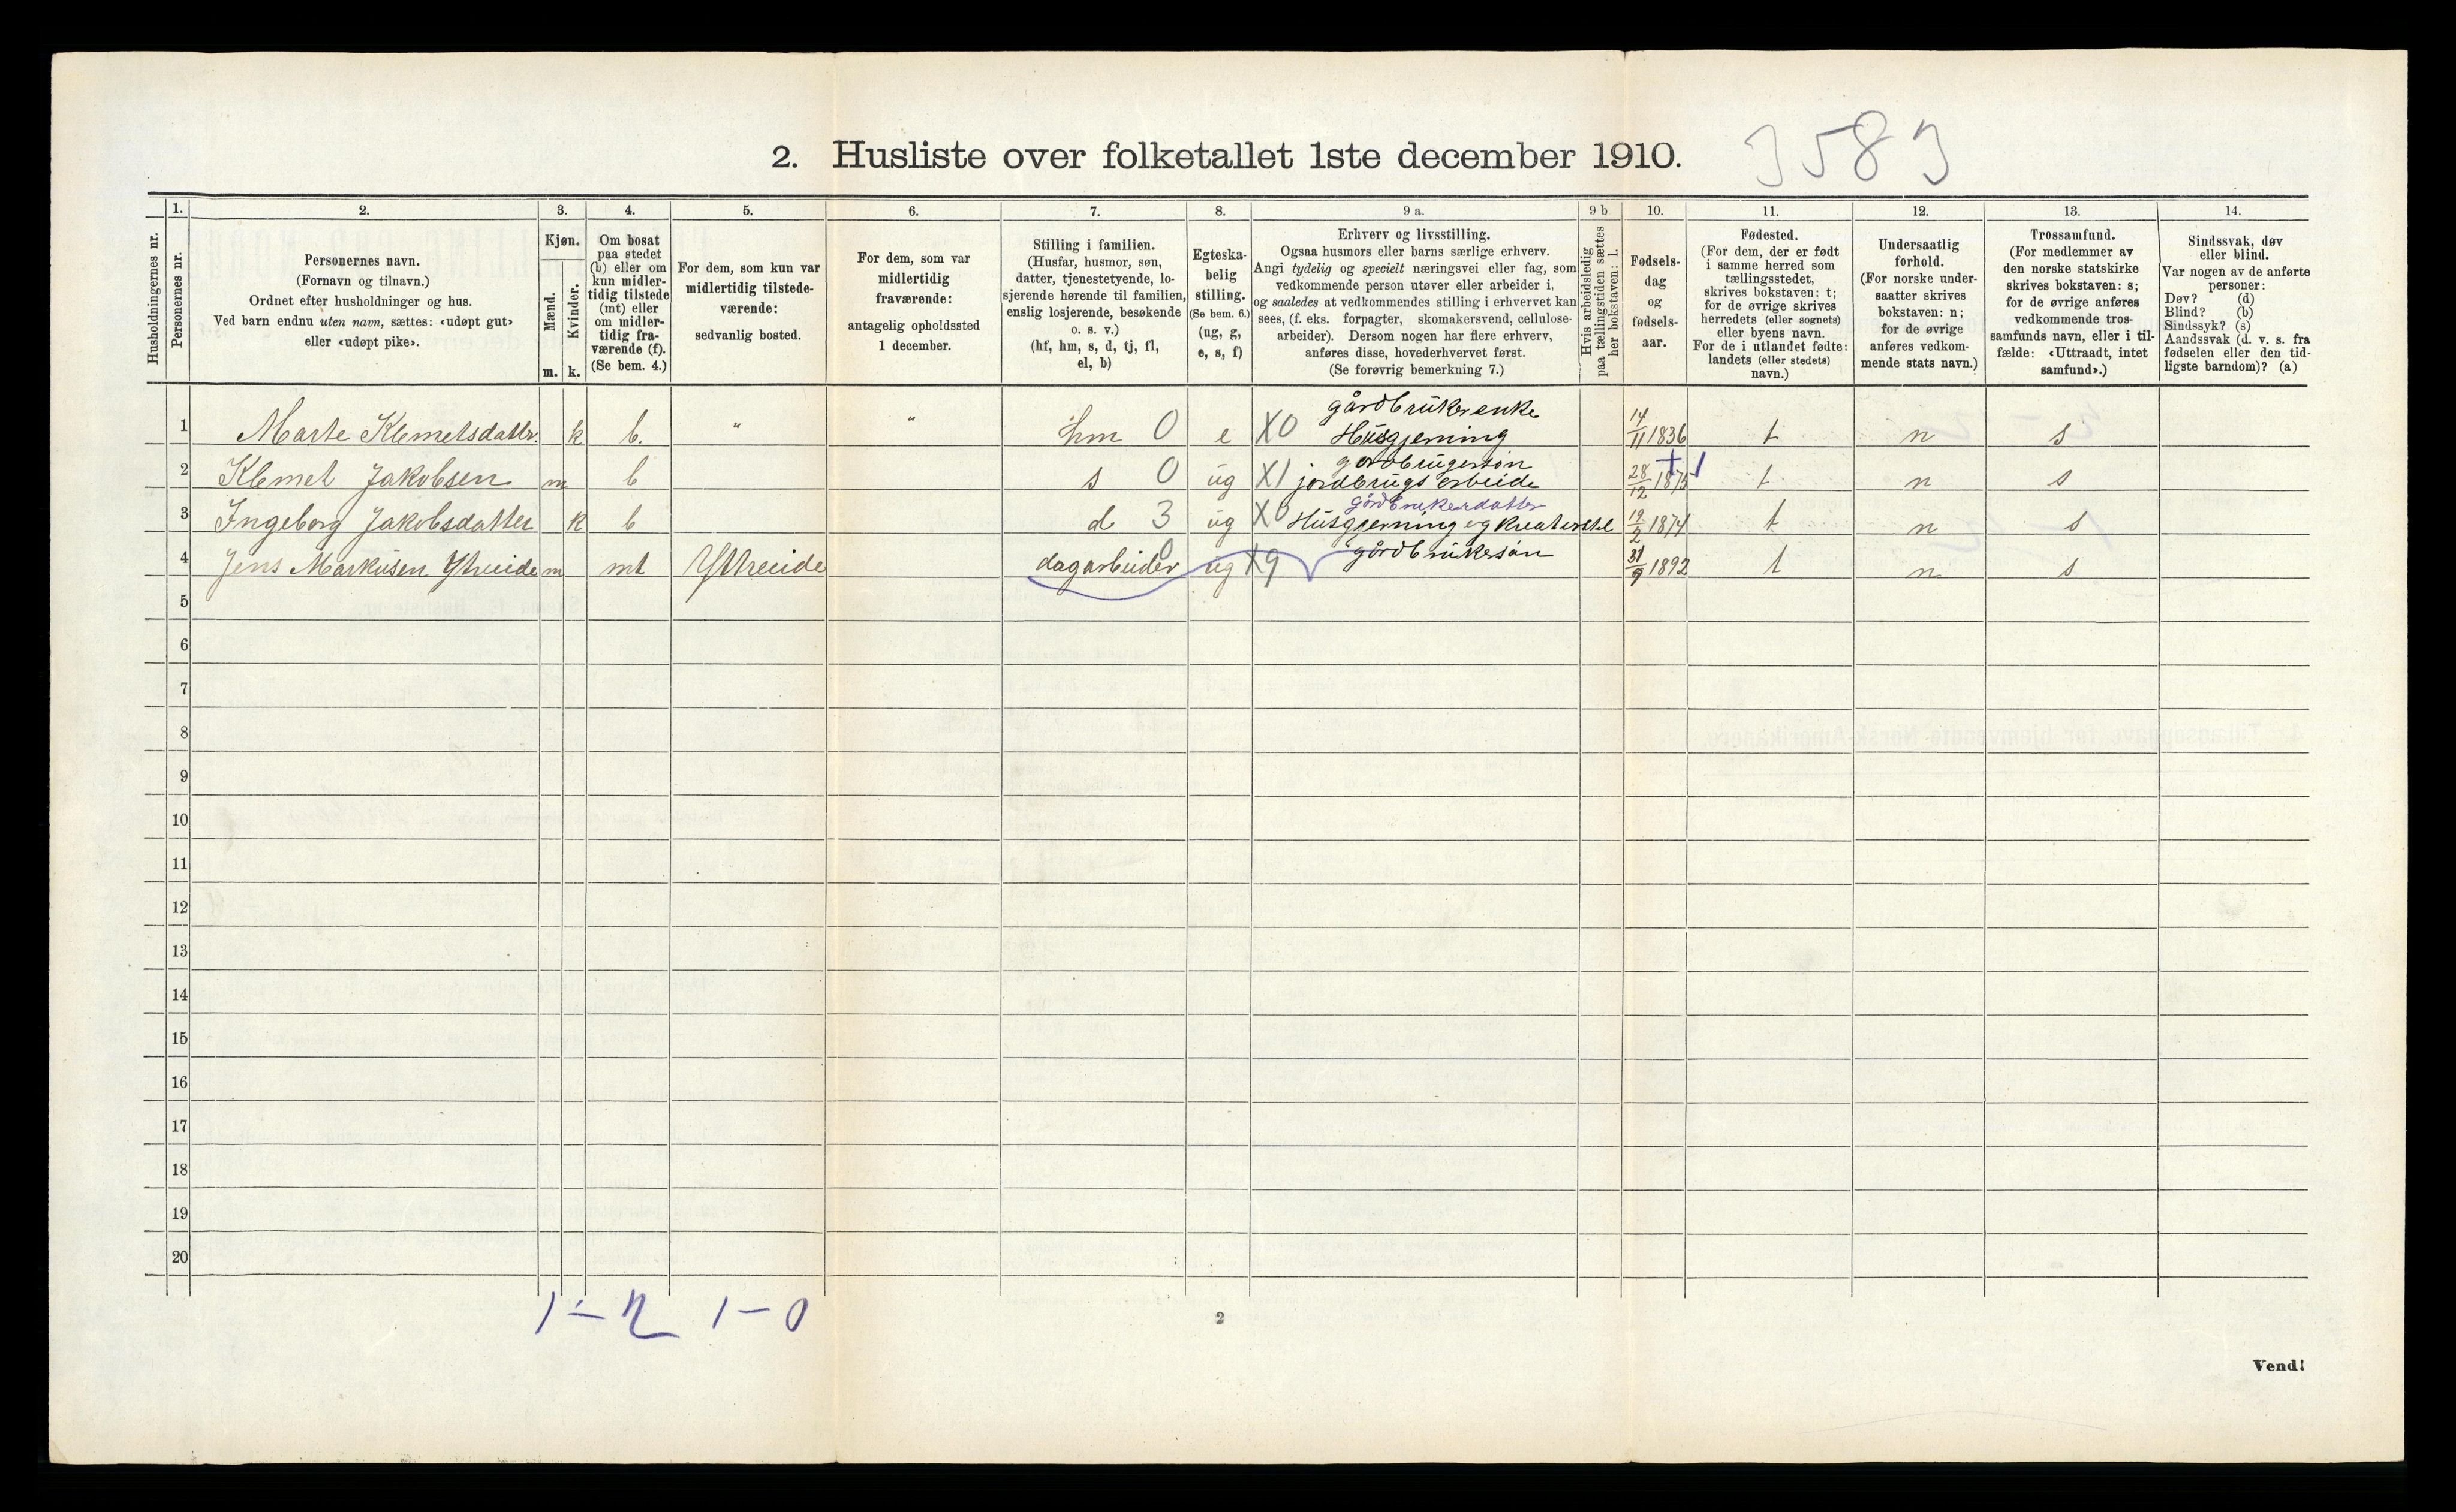 2. Husliste over folketallet 1ste december 1910. 3583
Husholdningernes nr.
1. Personernes nr.
2. Personernes navn. (Fornavn og tilnavn.) Ordnet efter husholdninger og hus. Ved barn endnu uten navn, sættes: «udøpt gut» eller «udøpt pike».
3. Kjøn. Mænd. m. Kvinder. k.
4. Om bosat paa stedet (b) eller om kun midlertidig tilstede (mt) eller om midlertidig fraværende (f). (Se bem. 4.)
5. For dem, som kun var midlertidig tilstedeværende: sedvanlig bosted.
6. For dem, som var midlertidig fraværende: antagelig opholdssted 1 december.
7. Stilling i familien. (Husfar, husmor, søn, datter, tjenestetyende, losjerende hørende til familien, enslig losjerende, besøkende o. s. v.) (hf, hm, s, d, tj, fl, el, b)
8. Egteskabelig stilling. (Se bem. 6.) (ug, g, e, s, f)
9 a. Erhverv og livsstilling. Ogsaa husmors eller barns særlige erhverv. Angi tydelig og specielt næringsvei eller fag, som vedkommende person utøver eller arbeider i, og saaledes at vedkommendes stilling i erhvervet kan sees, (f. eks. forpagter, skomakersvend, cellulosearbeider). Dersom nogen har flere erhverv, anføres disse, hovederhvervet først. (Se forøvrig bemerkning 7.)
9 b Hvis arbeidsledig paa tællingstiden sættes her bokstaven: l.
10. Fødselsdag og fødselsaar.
11. Fødested. (For dem, der er født i samme herred som tællingsstedet, skrives bokstaven: t; for de øvrige skrives herredets (eller sognets) eller byens navn. For de i utlandet fødte: landets (eller stedets) navn.)
12. Undersaatlig forhold. (For norske undersaatter skrives bokstaven: n; for de øvrige anføres vedkommende stats navn.)
13. Trossamfund. (For medlemmer av den norske statskirke skrives bokstaven: s; for de øvrige anføres vedkommende trossamfunds navn, eller i tilfælde: «Uttraadt, intet samfund».)
14. Sindssvak, døv eller blind. Var nogen av de anførte personer: Døv? (d) Blind? (b) Sindssyk? (s) Aandssvak (d. v. s. fra fødselen eller den tidligste barndom)? (a)
1 Marte Klemetsdattr. k b. " " hm 0 e X0 gårdbrukerenke Husgjerning 14/11 1836 t n s
2 Klemet Jakobsen m b s 0 ug X1 gordbrugersøn jordbrugsarbeide 28/12 1875 + 1 t n s
3 Ingeborg Jakobsdatter k b d 3 ug X0 gårdbrukerdatter Husgjerning og Kreaturstel 19/2 1874 t n s
4 Jens Markusen Ytreeide m mt Yttreeide dagarbeider 0 ug X9 gårdbrukersøn 31/9 1892 t n s
5
6
7
8
9
10
11
12
13
14
15
16
17
18
19
20
1 – 2 1 – 0
2
Vend!